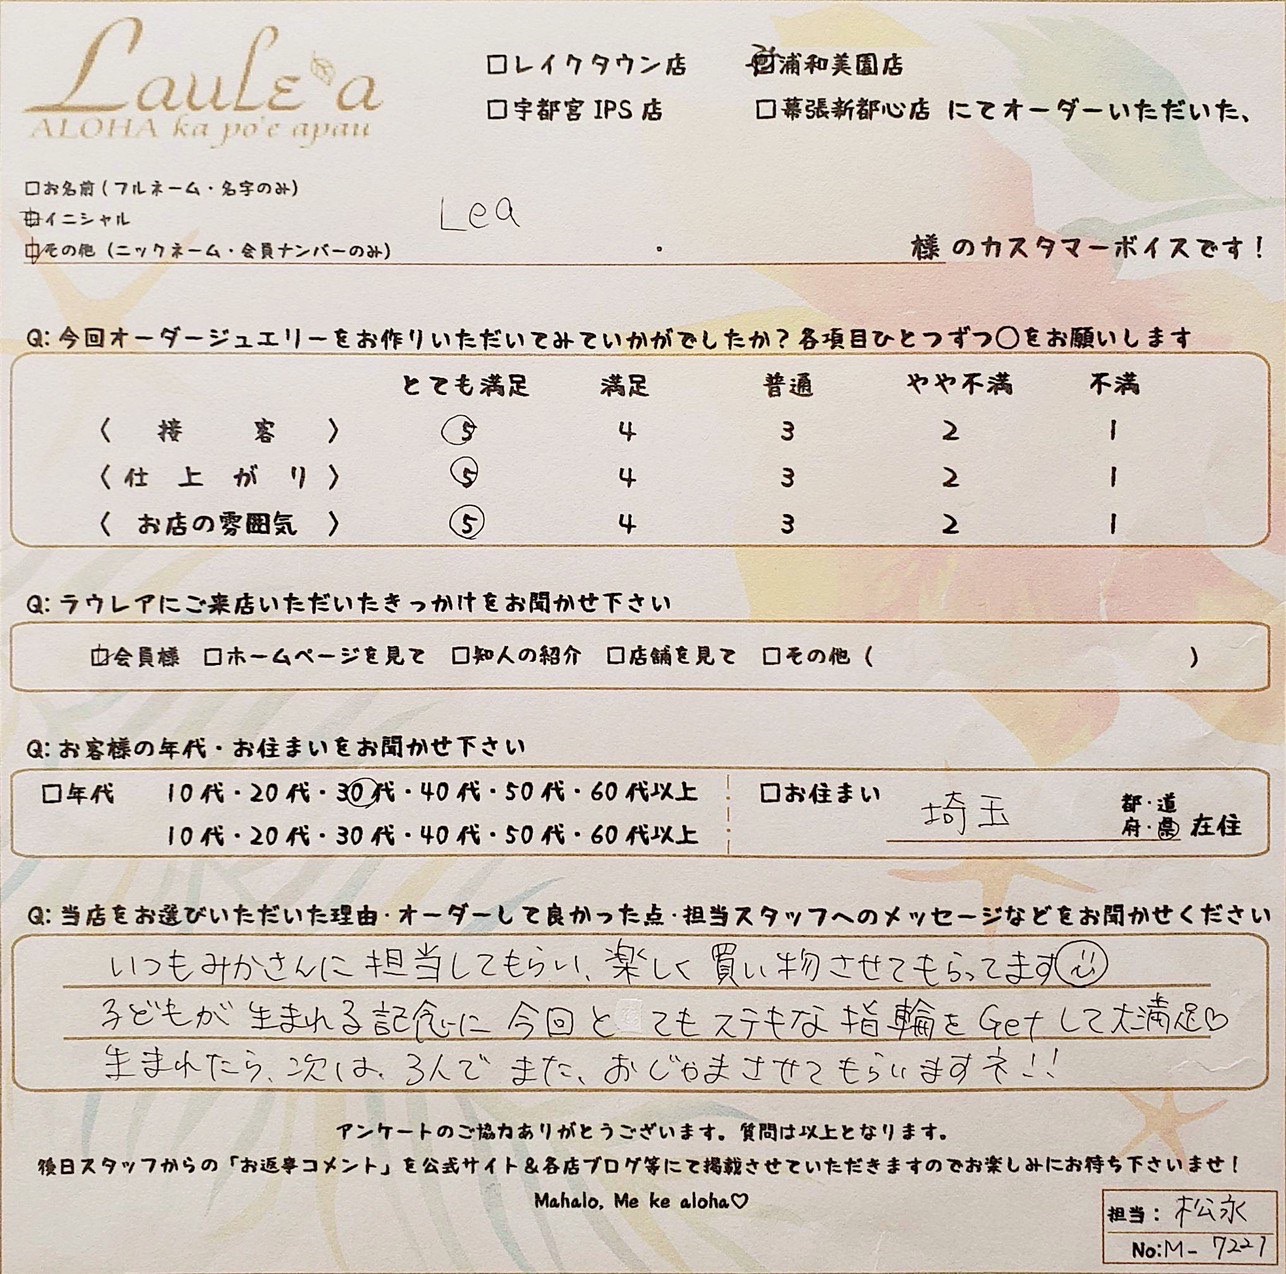 Laule'a
ALOHA ka po'e apau
□レイクタウン店 □浦和美園店
□宇都宮 IPS 店 □幕張新都心店 にてオーダーいただいた、
□お名前(フルネーム・名字のみ)
□イニシャル
□その他(ニックネーム・会員ナンバーのみ)
Lea
様のカスタマーボイスです!
Q:今回オーダージュエリーをお作りいただいてみていかがでしたか?各項目ひとつずつ○をお願いします
とても満足 満足 普通 やや不満 不満
〈 接 客 〉 5 4 3 2 1
〈仕 上 が り〉 5 4 3 2 1
〈 お店の雰囲気 〉 5 4 3 2 1
Q:ラウレアにご来店いただいたきっかけをお聞かせ下さい
□会員様 □ホームページを見て □知人の紹介 □店舗を見て □その他( )
Q:お客様の年代・お住まいをお聞かせ下さい
□年代 10代・20代・30代・40代・50代・60代以上
10代・20代・30代・40代・50代・60代以上
□お住まい 埼玉 都・道
府・県 在住
Q:当店をお選びいただいた理由・オーダーして良かった点・担当スタッフへのメッセージなどをお聞かせください
いつもみかさんに担当してもらい、楽しく買い物させてもらってます☺
子どもが生まれる記念に今回と てもステキな指輪をGetして大満足♡
生まれたら、次は、3人でまた、おじゃまさせてもらいますネ!!
アンケートのご協力ありがとうございます。質問は以上となります。
後日スタッフからの「お返事コメント」を公式サイト&各店ブログ等にて掲載させていただきますのでお楽しみにお待ち下さいませ!
Mahalo, Me ke aloha♡
担当:松永
No:M-7227